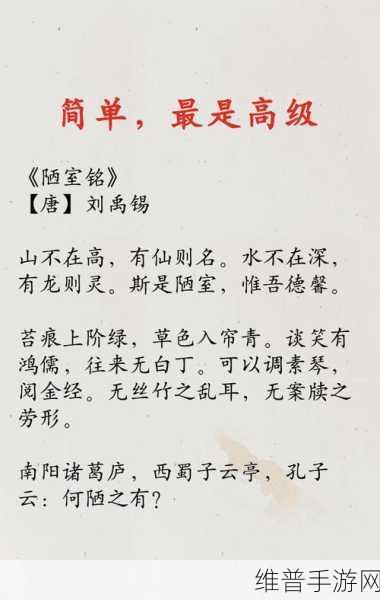 简单，最是高级
《陋室铭》
【唐】刘禹锡
山不在高，有仙则名。水不在深，
有龙则灵。斯是陋室，惟吾德馨。
苔痕上阶绿，草色入帘青。谈笑有
鸿儒，往来无白丁。可以调素琴，
阅金经。无丝竹之乱耳，无案牍之
劳形。
南阳诸葛庐，西蜀子云亭，孔子
云：何陋之有？
维普手游网